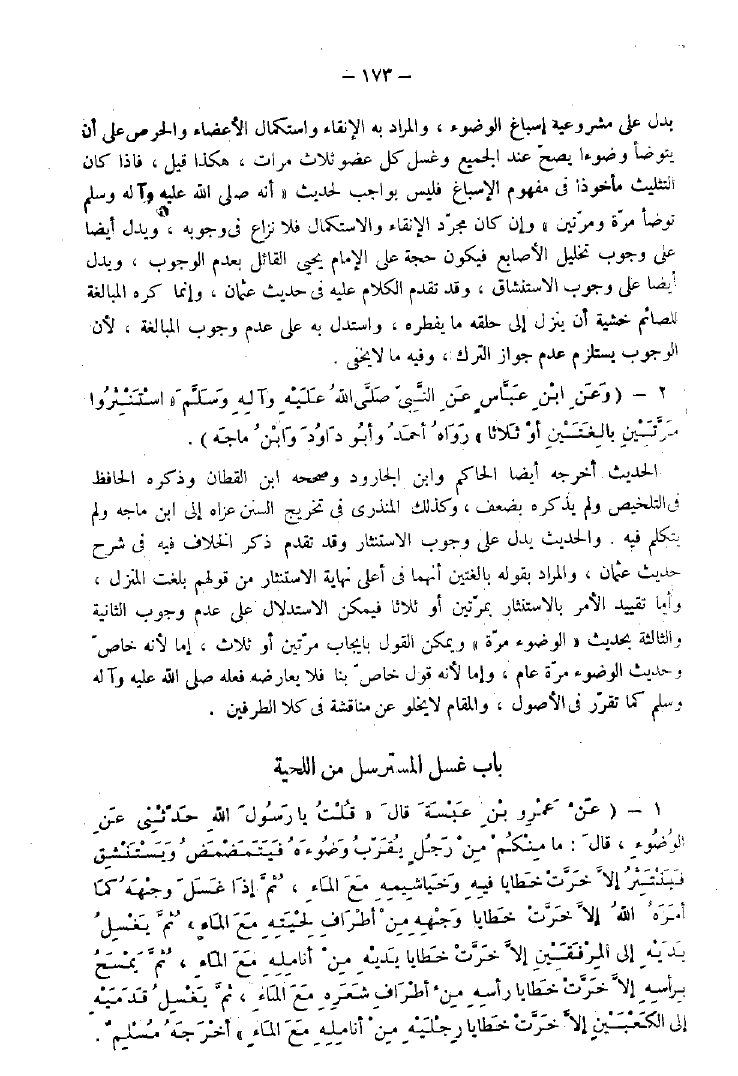 – ١٧٣ –
يدل على مشروعية إسباغ الوضوء ، والمراد به الإنقاء واستكمال الأعضاء والحرص على أن
يتوضأ وضوءا يصحّ عند الجميع وغسل كل عضو ثلاث مرات ، هكذا قيل ، فاذا كان
التثليث مأخوذا فى مفهوم الإسباغ فليس بواجب لحديث « أنه صلى الله عليه وآله وسلم
توضأ مرّة ومرّتين » وإن كان مجرّد الإنقاء والاستكمال فلا نزاع فى وجوبه ، ويدل أيضا
على وجوب تخليل الأصابع فيكون حجة على الإمام يحيى القائل بعدم الوجوب ، ويدل
أيضا على وجوب الاستنشاق ، وقد تقدم الكلام عليه فى حديث عثمان ، وإنما كره المبالغة
للصائم خشية أن ينزل إلى حلقه ما يفطره ، واستدل به على عدم وجوب المبالغة ، لأن
الوجوب يستلزم عدم جواز الترك ، وفيه ما لا يخفى .
٢ – ( وَعَنِ ابْنِ عَبَّاسٍ عَنِ النَّبِىّ صَلَّى اللهُ عَلَيْهِ وَآلِهِ وَسَلَّمَ « اسْتَنْثِرُوا
مَرَّتَيْنِ بالِغَتَيْنِ أوْ ثَلاثا » رَوَاهُ أحمَدُ وأبُو دَاوُدَ وَابْنُ ماجَه ) .
الحديث أخرجه أيضا الحاكم وابن الجارود وصححه ابن القطان وذكره الحافظ
فى التلخيص ولم يذكره بضعف ، وكذلك المنذرى فى تخريج السنن عزاه إلى ابن ماجه ولم
يتكلم فيه . والحديث يدل على وجوب الاستنثار وقد تقدم ذكر الخلاف فيه فى شرح
حديث عثمان ، والمراد بقوله بالغتين أنهما فى أعلى نهاية الاستنثار من قولهم بلغت المنزل ،
وأما تقييد الأمر بالاستنثار بمرّتين أو ثلاثا فيمكن الاستدلال على عدم وجوب الثانية
والثالثة بحديث « الوضوء مرّة » ويمكن القول بايجاب مرّتين أو ثلاث ، إما لأنه خاصّ
وحديث الوضوء مرّة عام ، وإما لأنه قول خاصّ بنا فلا يعارضه فعله صلى الله عليه وآله
وسلم كما تقرّر فى الأصول ، والمقام لا يخلو عن مناقشة فى كلا الطرفين .
باب غسل المسترسل من اللحية
١ – ( عَنْ عَمْرِو بْنِ عَبَسَةَ قالَ « قُلْتُ يا رَسُولَ اللهِ حَدّثْنِى عَنِ
الوُضُوءِ ، قالَ : ما مِنْكُمْ مِنْ رَجُلٍ يُقَرّبُ وَضُوءَهُ فَيَتَمَضْمَضُ وَيَسْتَنْشِقُ
فَيَنْتَثِرُ إلاَّ خَرَّتْ خَطايا فِيهِ وَخَياشِيمِهِ مَعَ المَاءِ ، ثُمَّ إذَا غَسَلَ وَجْهَهُ كما
أمَرَهُ اللهُ إلاَّ خَرَّتْ خَطايا وَجْهِهِ مِنْ أطْرَافِ لِحْيَتِهِ مَعَ المَاءِ ، ثُمَّ يَغْسِلُ
يَدَيْهِ إلى المِرْفَقَيْنِ إلاَّ خَرَّتْ خَطايا يَدَيْهِ مِنْ أنامِلِهِ مَعَ المَاءِ ، ثُمَّ يَمْسَحُ
برأسِهِ إلاَّ خَرَّتْ خَطايا رأسِهِ مِنْ أطْرَافِ شَعَرِهِ مَعَ المَاءِ ، ثُمَّ يَغْسِلُ قَدَمَيْهِ
إلى الكَعْبَيْنِ إلاَّ خَرَّتْ خَطايا رِجْلَيْهِ مِنْ أنامِلِهِ مَعَ المَاءِ » أخْرَجَهُ مُسْلِمٌ .